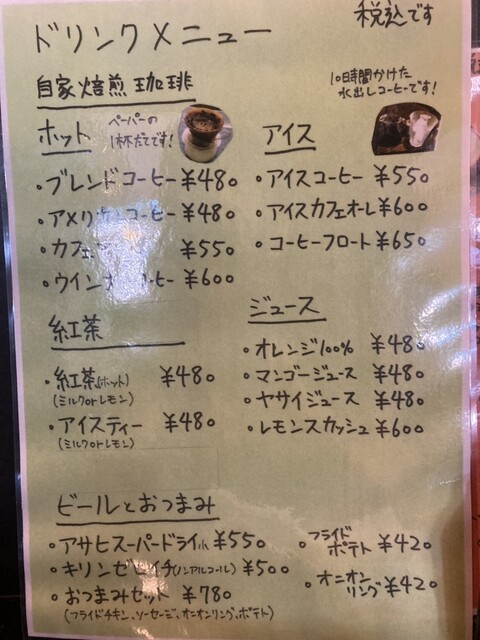 ドリンクメニュー
税込です
自家焙煎 珈琲
ホット
ペーパーの
1杯だてです!
・ブレンドコーヒー ¥480
・アメリカンコーヒー ¥480
・カフェ ¥550
・ウインナーコーヒー ¥600
10時間かけた
水出しコーヒーです!
アイス
・アイスコーヒー ¥550
・アイスカフェオーレ ¥600
・コーヒーフロート ¥650
紅茶
・紅茶(ホット) ¥480
(ミルクorレモン)
・アイスティー ¥480
(ミルクorレモン)
ジュース
・オレンジ100% ¥480
・マンゴージュース ¥480
・ヤサイジュース ¥480
・レモンスカッシュ ¥600
ビールとおつまみ
・アサヒスーパードライ小 ¥550
・キリンゼロイチ(ノンアルコール) ¥500
・おつまみセット ¥780
(フライドチキン、ソーセージ、オニオンリング、ポテト)
・フライド
ポテト ¥420
・オニオン
リング ¥420